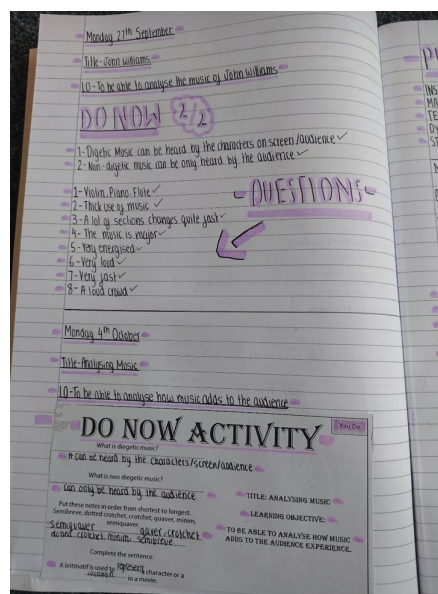 Monday 27th September
Title-John Williams
LO-To be able to analyse the music of John Williams
DO NOW 2/2
1-Digetic Music can be heard by the characters on screen/audience ✓
2-Non-digetic music can be only heard by the audience ✓
1-Violin, Piano, Flute ✓
2-Thick use of music ✓
3-A lot of sections changes quite fast ✓
4-The music is major ✓
5-Very energised ✓
6-Very loud ✓
7-Very fast ✓
8-A loud crowd ✓
-QUESTIONS-
Monday 4th October
Title-Analysing Music
LO-To be able to analyse how music adds to the audience
DO NOW ACTIVITY
You Do
What is diegetic music?
It can be heard by the characters/screen/audience
What is non diegetic music?
can only be heard by the audience
Put these notes in order from shortest to longest.
Semibreve, dotted crotchet, crotchet, quaver, minim,
semiquaver
semiquaver quaver, crotchet
doted crotchet, minim, semibreve
Complete the sentence:
A leitmotif is used to represent a character or a
location in a movie.
TITLE: ANALYSING MUSIC
LEARNING OBJECTIVE:
TO BE ABLE TO ANALYSE HOW MUSIC
ADDS TO THE AUDIENCE EXPERIENCE.
INS